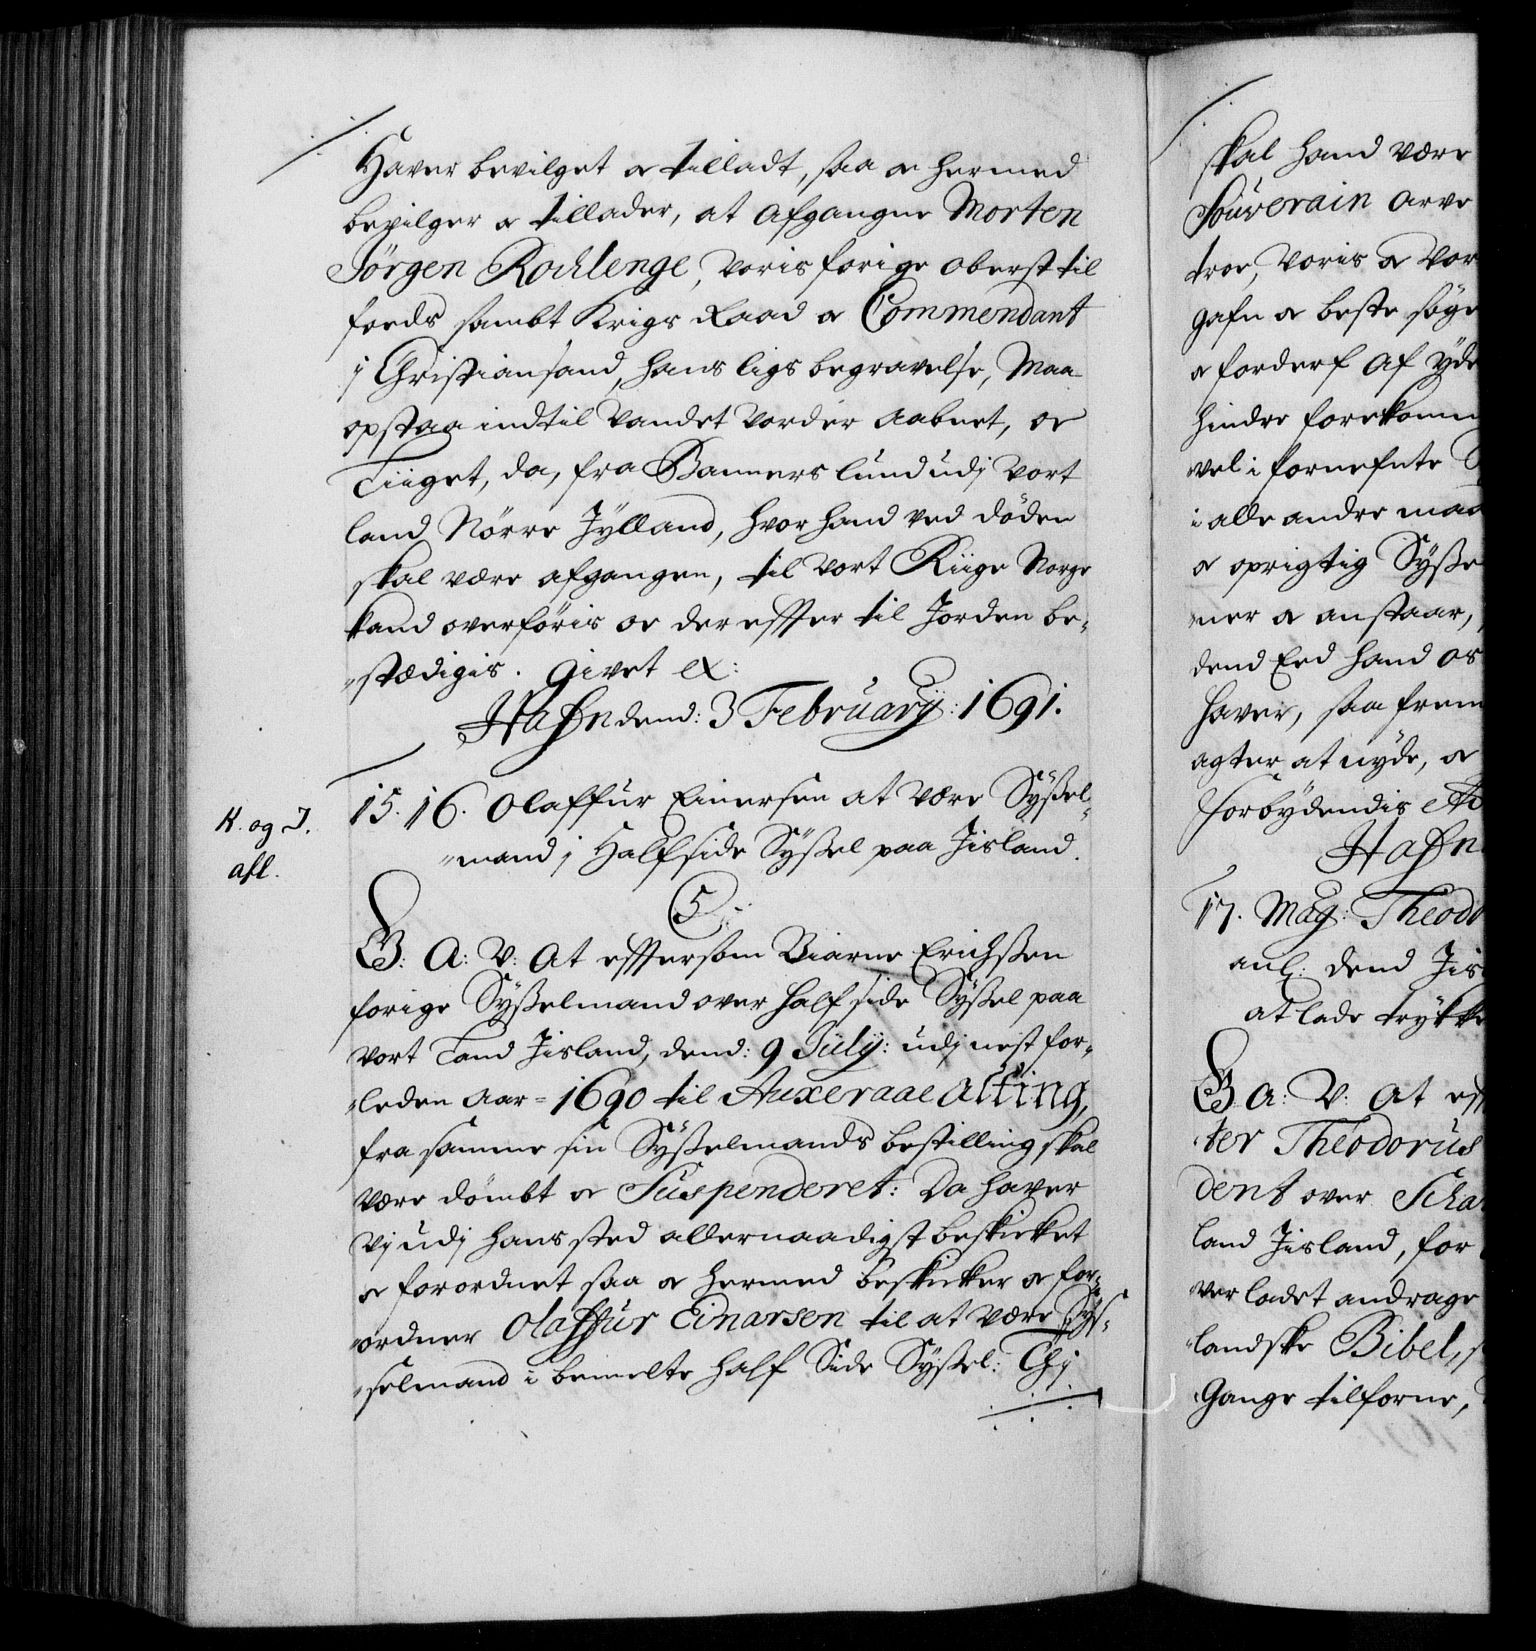 Hafver bevilget oc tilladt, saa oc hermed
bevilger oc tillader, at afgangne Morten
Jörgen Rochlenge, Voris forige Oberst til
foeds sambt Krigs Raad oc Commendant
j Christiansand, hans ligs begravelse, Maa
opstaa indtil Vandet Vorder aabnet, oc
Liiget, da, fra Bannerslund udj Vort
land Nörre Jylland, hvor hand ved döden
skal være afgangen, til Vort Riige Norge
kand overföris oc der effter til Jorden be-
stædigis. Givet ex:
Hafn dend: 3 February: 1691.
K. og I.
afl.
15. 16. Olaffur Einersen at være Sÿssel-
mand j Halfside Sÿssel paa Jisland.
5
G: A: V: At effersom Biarne Erichssen
forige Sÿsselmand over Halfside Sÿssel paa
Vort Land Jisland, dend: 9 Julÿ: udj nest for-
leden Aar 1690 til Auxeraae alting,
fra samme sin Sÿsselmands bestilling skal
være dömbt oc Suspenderet: Da hafver
Vj udj hans sted allernaadigst beskicket
oc forordnet saa oc hermed beskicker oc for-
ordner Olaffur Einarsen til at være Sÿs-
selmand i bemelte half Side Sÿssel: Thj
skal hand være
Souverain Arve
troe, Voris oc Vor
gafn oc beste söge
oc forderf af yde
hindre forekomm
vel i fornefnte
i alle andre maa
oc oprigtig Sÿsse
mer oc anstaar,
dend Eed hand os
hafver, saa frem
agter at nyde, oc
Forbydendis
Hafn
17. Mag: Theodo
anl: dend Jis
at lade trykke
G. A: V: At eff
ter Theodorus
dent over Scha
land Jisland, for
ver ladet andrage
landske Bibel,
Gange tilforne,